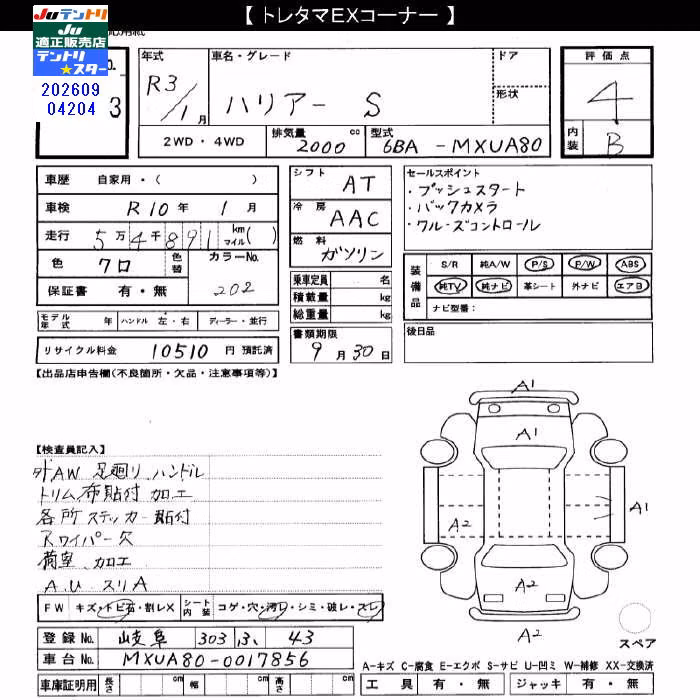 【 トレタマEXコーナー 】
Juテントリ
JU
適正販売店
テントリ
★スター
202609
04204
3
年式
R3/1月
車名・グレード
ハリアー S
ドア
形状
評価点
4
内装 B
2WD・4WD
排気量 2000 cc
型式 6BA - MXUA80
車歴 自家用・( )
車検 R10年 1月
走行 5万4千891 km マイル( )
色 クロ 色替
カラーNo. 202
保証書 有・無
シフト AT
冷房 AAC
燃料 ガソリン
乗車定員 名
積載量 kg
総重量 kg
セールスポイント
・プッシュスタート
・バックカメラ
・クルーズコントロール
装備品
S/R 純A/W P/S P/W ABS
純TV 純ナビ 革シート 外ナビ エアB
ナビ型番：
モデル年式 年 ハンドル 左・右 ディーラー・並行
リサイクル料金 10510 円 預託済
書類期限
9月30日
後日品
【出品店申告欄(不良箇所・欠品・注意事項等)】
【検査員記入】
外AW 足廻り ハンドル
トリム 布貼付 加工
各所 ステッカー貼付
Rワイパー欠
荷室 加工
A.U. スリA
FW キズ・トビ石・割レX
シート内装 コゲ・穴・汚レ・シミ・破レ・スレ
A1
A1
A1
A2
A2
A2
スペア
登録No. 岐阜 303 ふ 43
車台No. MXUA80-0017856
A-キズ C-腐食 E-エクボ S-サビ U-凹ミ W-補修 XX-交換済
車庫証明用 長さ cm 幅 cm 高さ cm
工具 有・無 ジャッキ 有・無